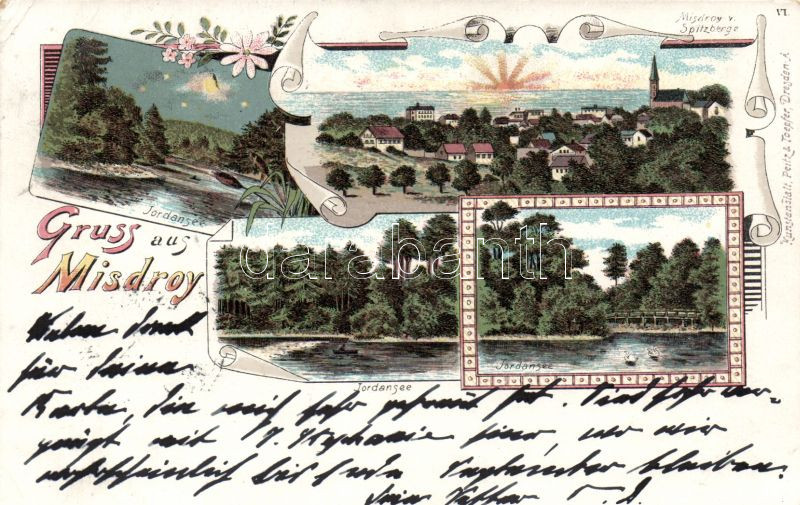 VI.
Misdroy v.
Spitzberge
Jordansee
Gruss aus
Misdroy
darabanth
Jordansee
Jordansee
Kunstanstalt, Peitz & Toepfer, Dresden A.
für Deine
Karte, die mich sehr gefreut hat. Sind sehr ver-
gnügt mit hier, wo wir
wahrscheinlich bis Ende September bleiben.
Dein Vetter